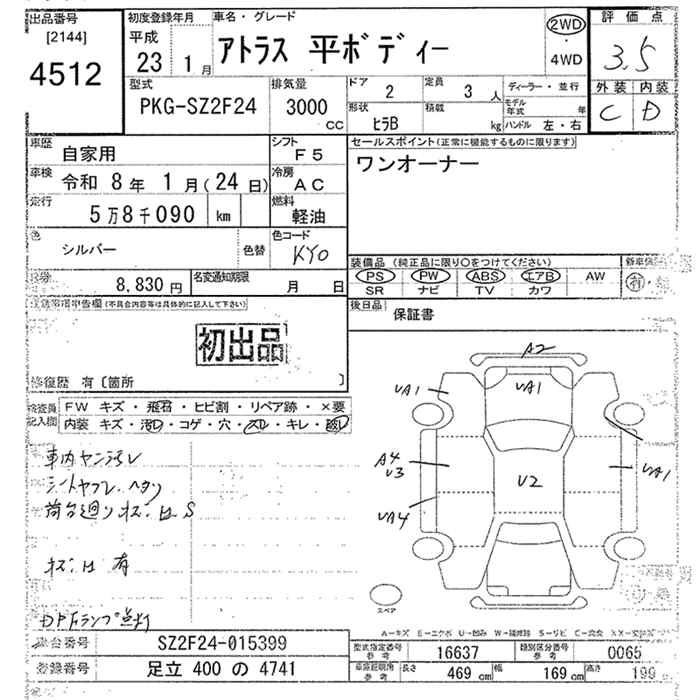 出品番号
[2144]
4512
初度登録年月
平成
23 1月
車名・グレード
アトラス 平ボディー
2WD
・
4WD
評価点
3.5
外装 内装
C D
型式
PKG-SZ2F24
排気量
3000
CC
ドア
2
定員
3人
形状
ヒラB
積載
kg
ディーラー・並行
モデル年式 年
ハンドル 左・右
車歴
自家用
シフト
F5
車検
令和 8年 1月(24日)
冷房
AC
走行
5万8千090 km
燃料
軽油
色
シルバー
色替
色コード
KY0
8,830円
名変通知期限
月 日
セールスポイント(正常に機能するものに限ります)
ワンオーナー
装備品(純正品に限り〇をつけてください)
PS PW ABS エアB AW
SR ナビ TV カワ
新車保
有・
後日品
保証書
(不具合内容等は具体的に記入して下さい)
初出品
修復歴 有〔箇所 〕
検査員記入欄
FW キズ・飛石・ヒビ割・リペア跡・×要
内装 キズ・汚れ・コゲ・穴・スレ・キレ・破れ
車内ヤニ汚レ
シートヤブレ、ヘタリ
荷台廻りキズ、凹、S
キズ、凹 有
DPFランプ点灯
A2
UA1
UA1
A4
U3
U2
UA1
UA4
スペア
A-キズ E-エクボ U-凹み W-補修跡 S-サビ C-腐食 XX-交換
車台番号
SZ2F24-015399
登録番号
足立 400 の 4741
型式指定番号
参考
16637
類別区分番号
参考
0065
車庫証明用
参考
長さ 469 cm
幅 169 cm
高さ 199